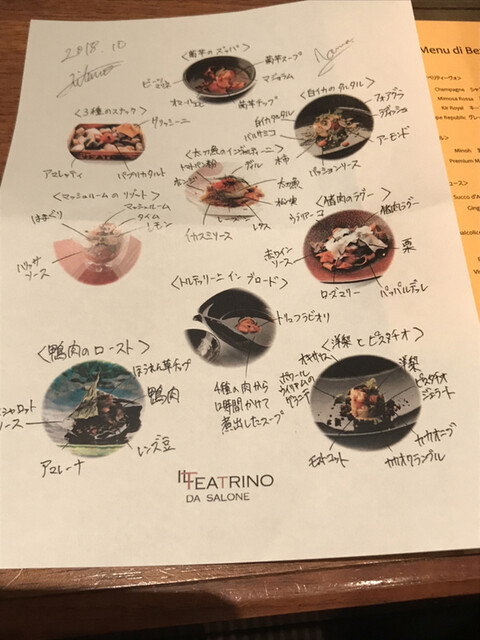 2018.10
<菊芋のズッパ>
菊芋スープ
マジョラム
菊芋チップ
オマール
<3種のスナック>
グリッシーニ
アマレッティ
パプリカタルト
<白イカのタルタル>
フォアグラ
ラディッシュ
白イカタルタル
バルサミコ
アーモンド
パッションソース
<太刀魚のインヴォルティーニ>
トマトパン粉
ケッパー
太刀魚
松の実
レーズン
レタス
イカスミソース
<マッシュルームのリゾート>
マッシュルーム
タイム
レモン
はまぐり
バッサ
ソース
<猪肉のラグー>
猪肉ラグー
ホワイト
ソース
栗
ローズマリー
パッパルデッレ
<トルテッリーニ イン ブロード>
トリュフラビオリ
4種の肉から
12時間かけて
煮出したスープ
<鴨肉のロースト>
ほうれん草チップ
鴨肉
シャロット
ソース
アマレーナ
レンズ豆
<洋梨とピスタチオ>
オキサリス
ポワール
ウィリアムの
グラニテ
洋梨
ピスタチオ
ジェラート
カカオニブ
カカオクランブル
モオココット
IL TEATRINO
DA SALONE
Menu di Be
Champagne
Mimosa Rossa
Kir Royal
Premium Ma
Succo d'A
Ging